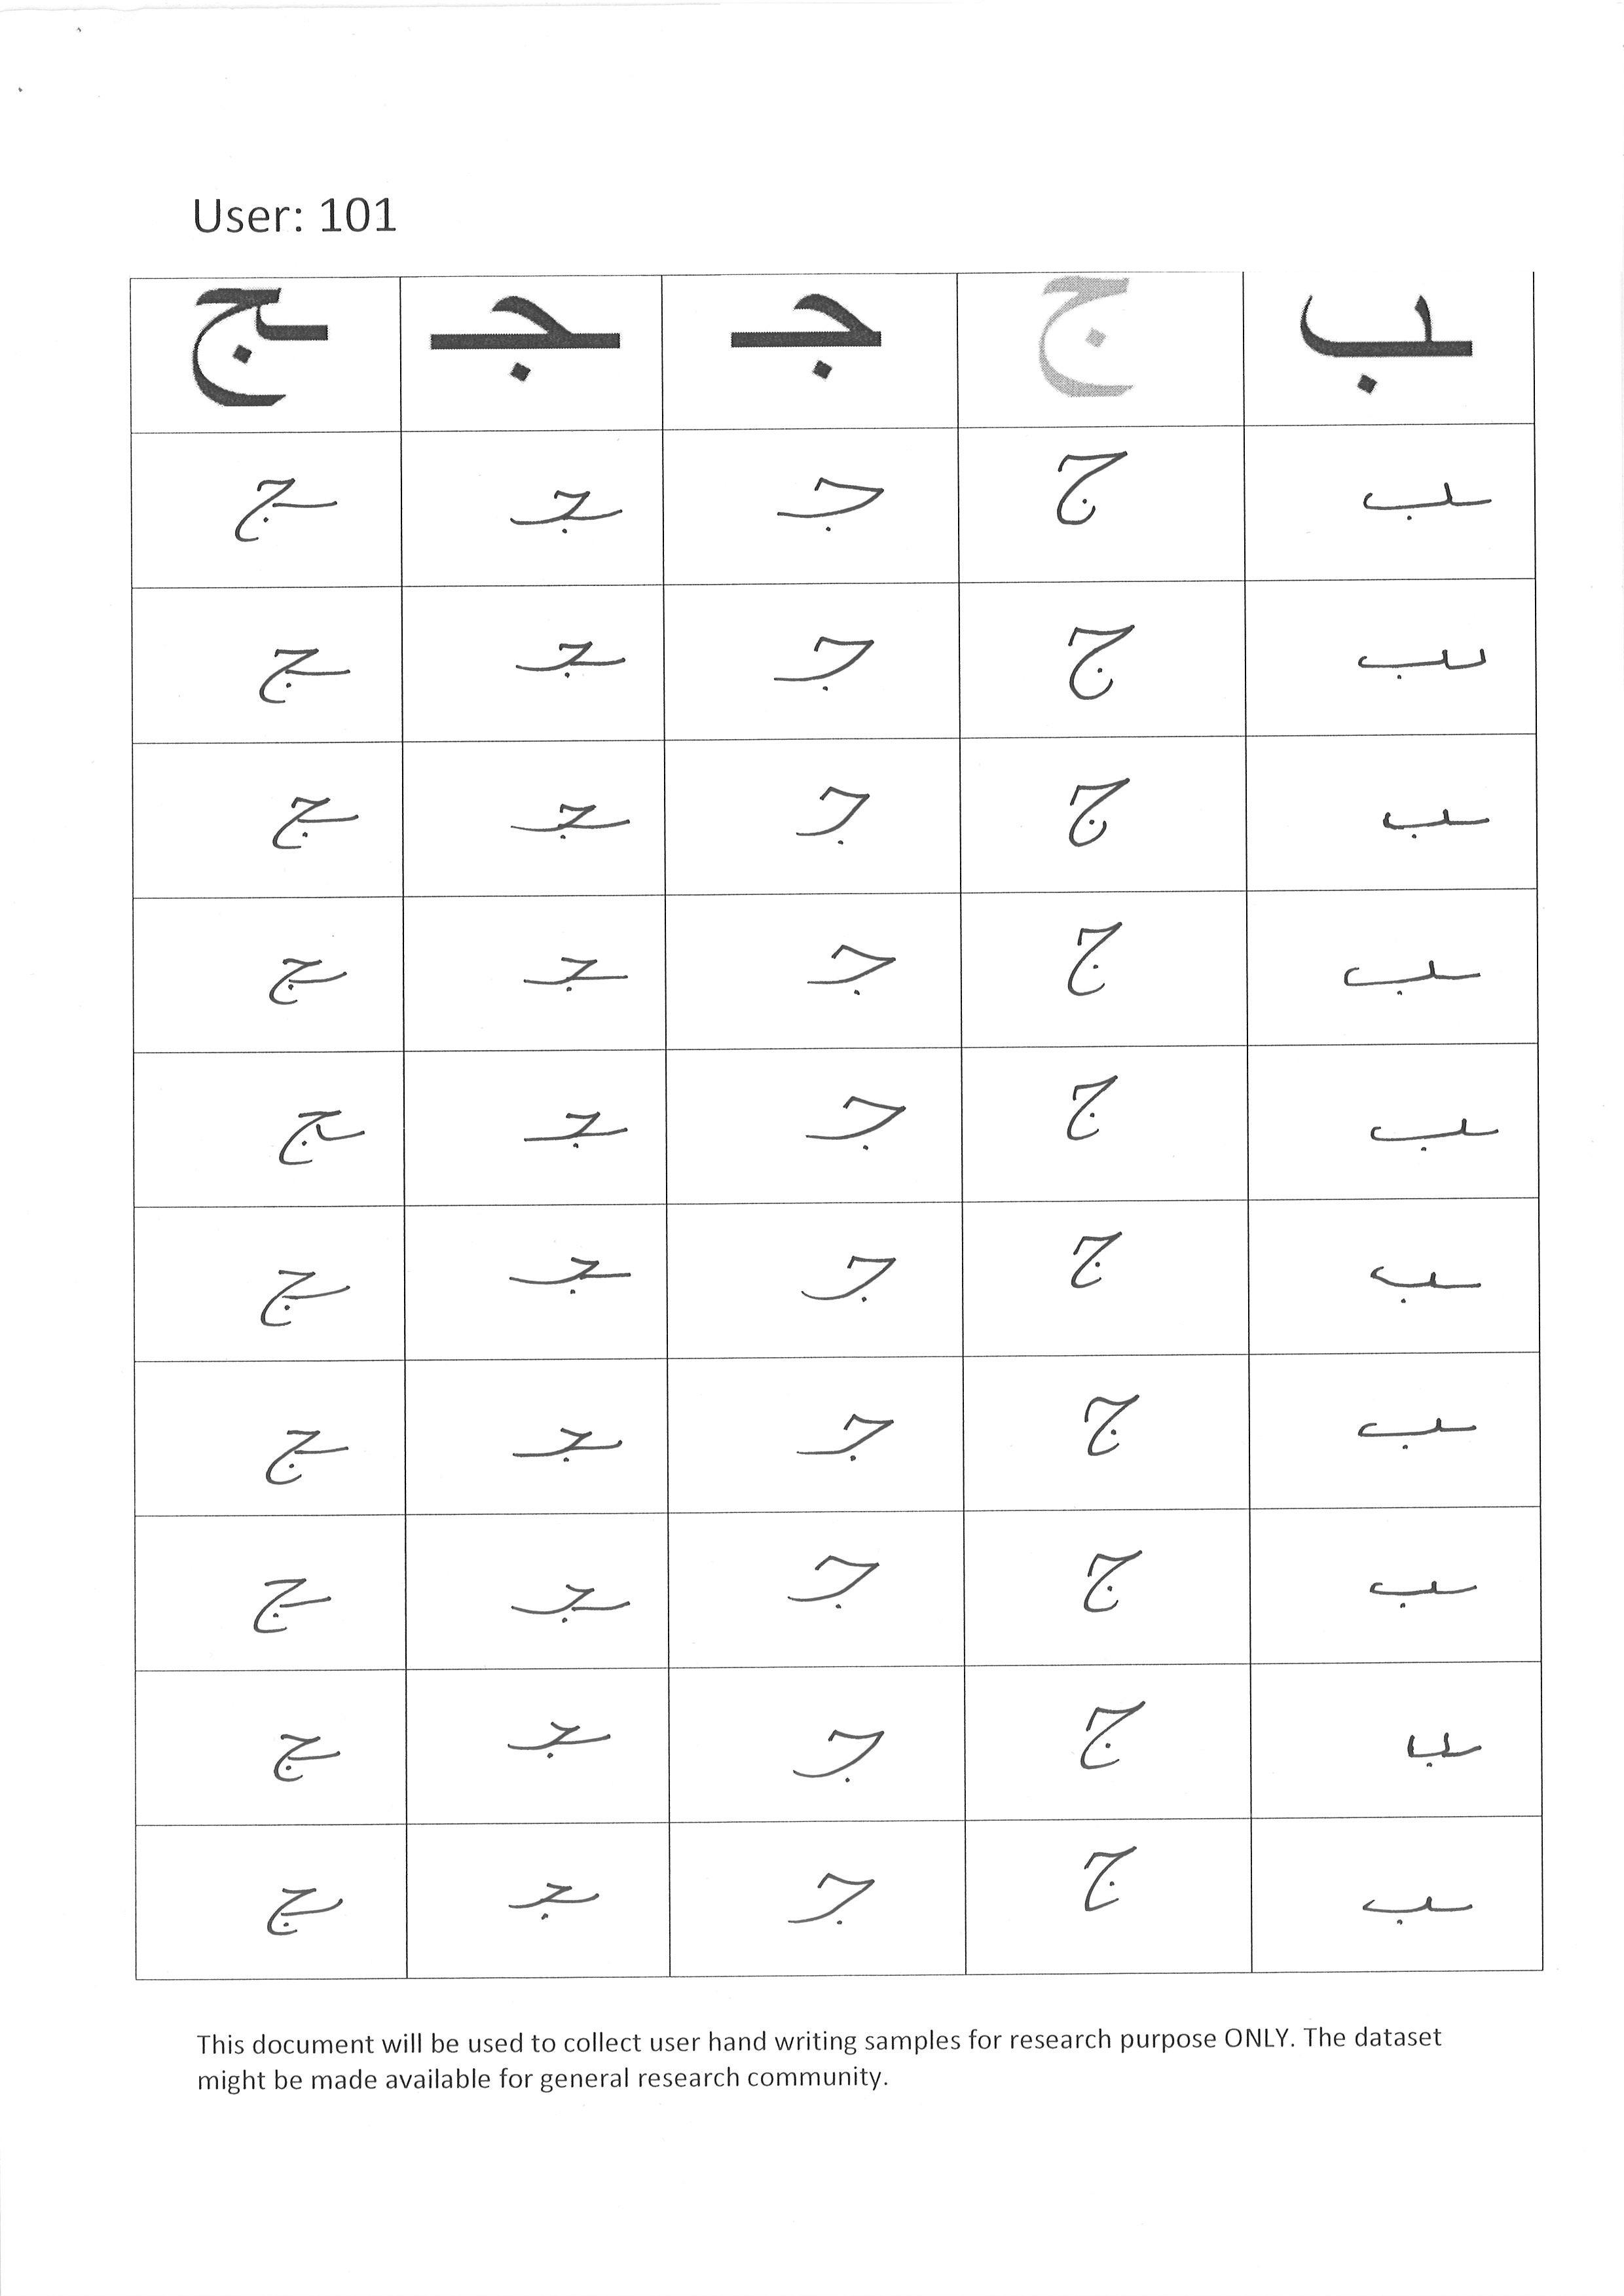 User: 101
ـب ج جـ ـجـ ـج
ـب ج جـ ـجـ ـج
ـب ج جـ ـجـ ـج
ـب ج جـ ـجـ ـج
ـب ج جـ ـجـ ـج
ـب ج جـ ـجـ ـج
ـب ج جـ ـجـ ـج
ـب ج جـ ـجـ ـج
ـب ج جـ ـجـ ـج
ـب ج جـ ـجـ ـج
ـب ج جـ ـجـ ـج
This document will be used to collect user hand writing samples for research purpose ONLY. The dataset
might be made available for general research community.